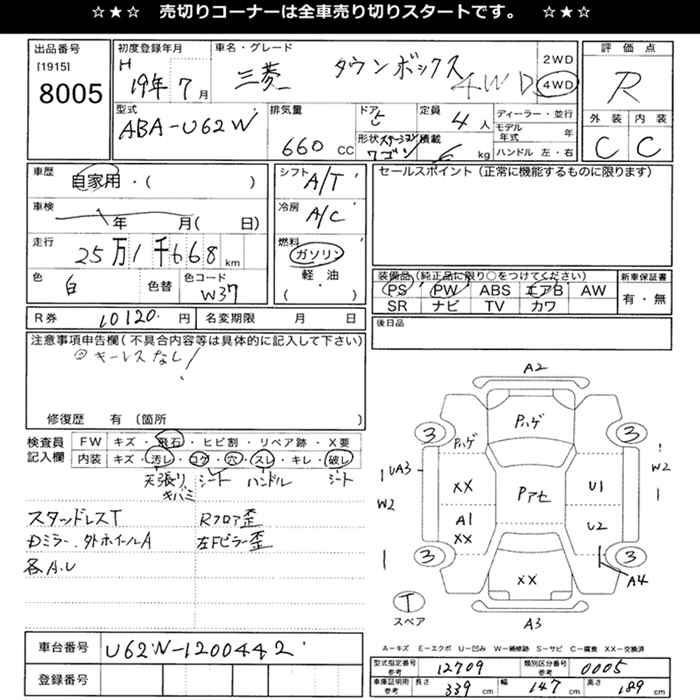 ☆★☆ 売切りコーナーは全車売り切りスタートです。 ☆★☆
出品番号 初度登録年月 車名・グレード 評価点
[1915] H 2WD
8005 19年7月 三菱 タウンボックス 4WD 4WD R
型式 排気量 ドア 5 定員 ディーラー・並行 外装 内装
ABA-U62W 660 CC 4人 モデル年式 年 C C
形状 ステーションワゴン 積載 kg ハンドル 左・右
車歴 シフト セールスポイント (正常に機能するものに限ります)
自家用・( ) A/T
車検 冷房
年 月( 日) A/C
走行 燃料
25万1千668km ガソリン
色 色替 色コード 軽・油
白 W37 ( )
装備品 (純正品に限り○をつけてください) 新車保証書
PS PW ABS エアB AW 有・無
SR ナビ TV カワ
R券 10120 円 名変期限 月 日 後日品
注意事項申告欄(不具合内容等は具体的に記入して下さい)
◎キーレスなし!
修復歴 有 〔箇所 〕
検査員 FW キズ・飛石・ヒビ割・リペア跡・X要
記入欄 内装 キズ・汚レ・コゲ・穴・スレ・キレ・破レ
天張り シート ハンドル シート
キバミ
スタッドレスT Rフロア歪
Dミラー、外ホイールA 左Fピラー歪
各A.U
車台番号 U62W-1200442
登録番号
A2
Pハゲ
3 3
Pハゲ
UA3 W2
XX Pアセ U1
W2
A1 U2
XX
3 3
XX A4
T
スペア A3
A=キズ E=エクボ U=凹み W=補修跡 S=サビ C=腐食 XX=交換済
型式指定番号 参考 12709 類別区分番号 参考 0005
車庫証明用 参考 長さ 339 cm 幅 147 cm 高さ 189 cm